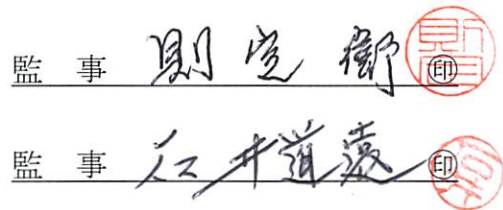 監事 則定衛 ㊞
監事 石井道遠 ㊞